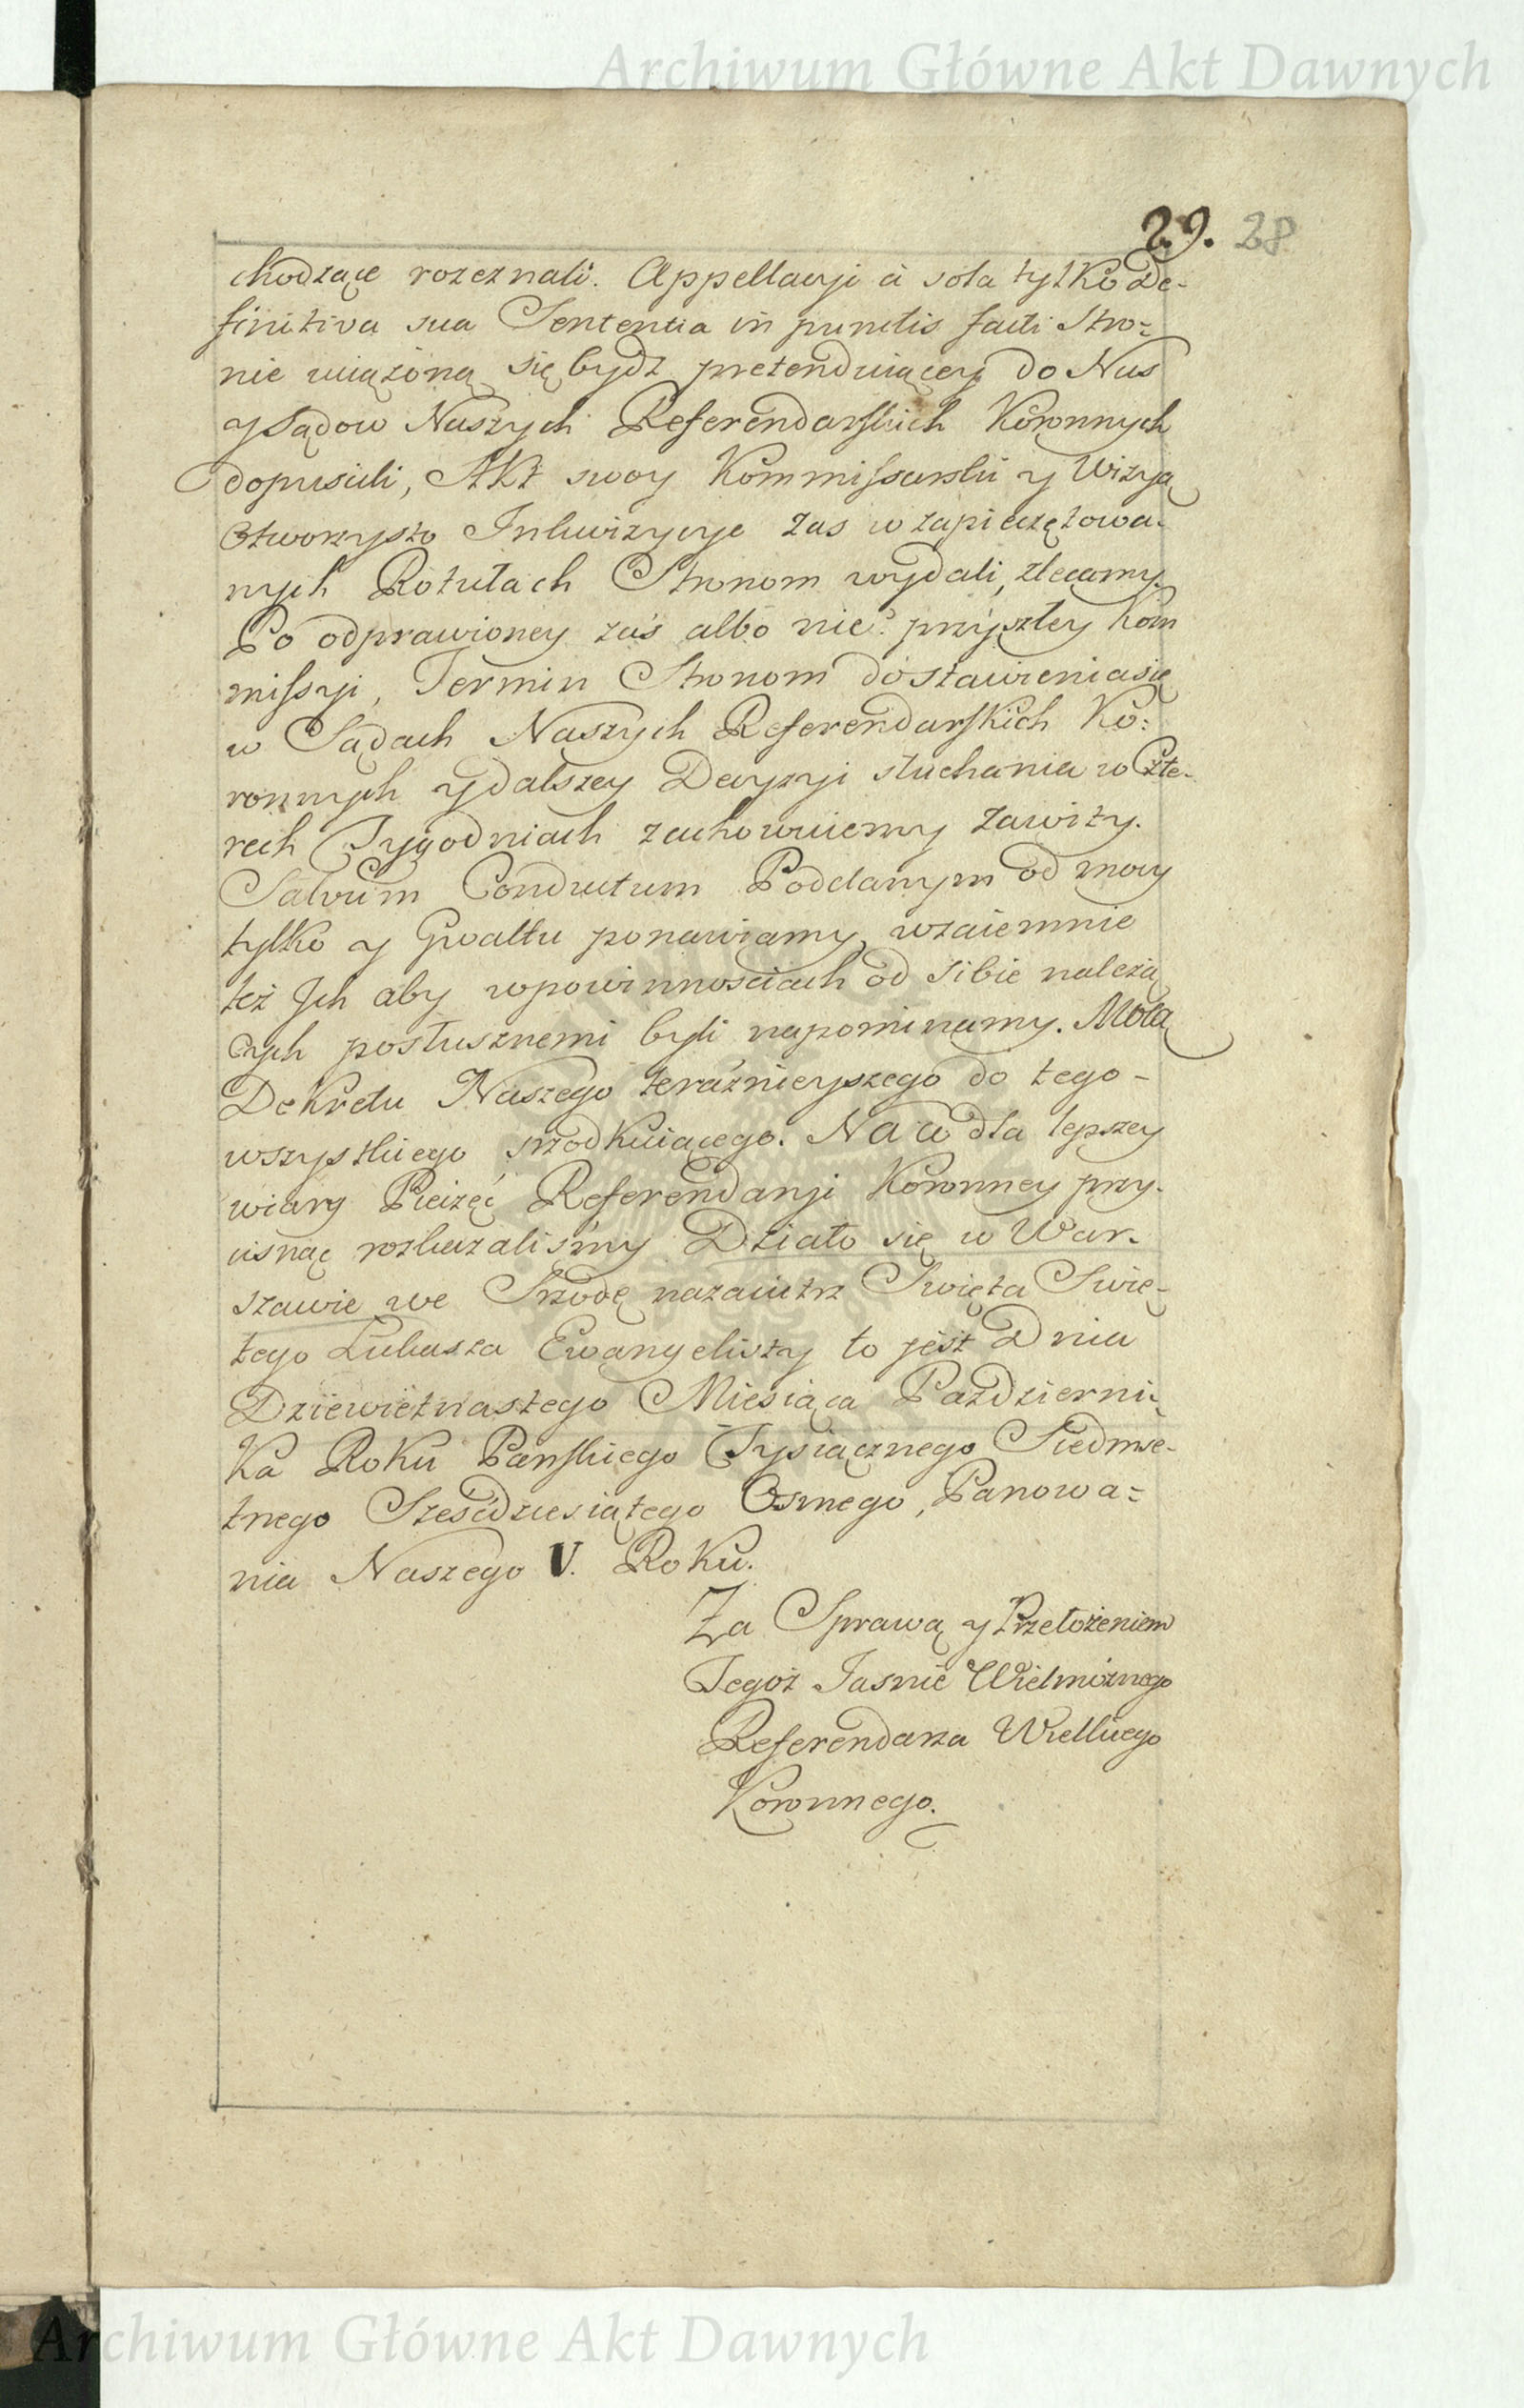 Archiwum Główne Akt Dawnych
29. 28
chodzące rozeznali. Appellacyi à sola tylko De-
finitiva sua Sententia in punctis facti Stro-
nie uciążoną się bydź pretenduiącey do Nas
y Sądow Naszych Referendarskich Koronnych
dopuścili, Akt swoy Kommissarski y Wizyą
Otworzysto Inkwizycye zas w zapieczętowa-
nych Rotułach Stronom wydali, zlecamy.
Po odprawioney zaś albo nie przyszłey Kom
missyi, Termin Stronom do stawienia się
w Sądach Naszych Referendarskich Ko-
ronnych y dalszey Decyzyi słuchania w Czte-
rech Tygodniach zachowuiemy zawity.
Salvum Conductum Poddanym od mocy
tylko y Gwałtu ponawiamy, wzaiemnie
też Ich aby w powinnościach od siebie należą
cych posłusznemi byli napominamy. Mocą
Dekretu Naszego teraźnieyszego do tego-
wszystkiego srzodkuiącego. Na co dla lepszey
wiary Pieczęć Referendaryi Koronney przy-
cisnąć rozkazaliśmy Działo się w War-
szawie we Srzodę nazaiutrz Swięta Swię-
tego Łukasza Ewangelisty to jest Dnia
Dziewiętnastego Miesiąca Pazdzierni-
ka Roku Panskiego Tysiącznego Siedmse-
tnego Sześćdziesiątego Osmego, Panowa-
nia Naszego V. Roku.
Za Sprawą y Przełożeniem
Tegoż Jasnie Wielmożnego
Referendarza Wielkiego
Koronnego.
Archiwum Główne Akt Dawnych